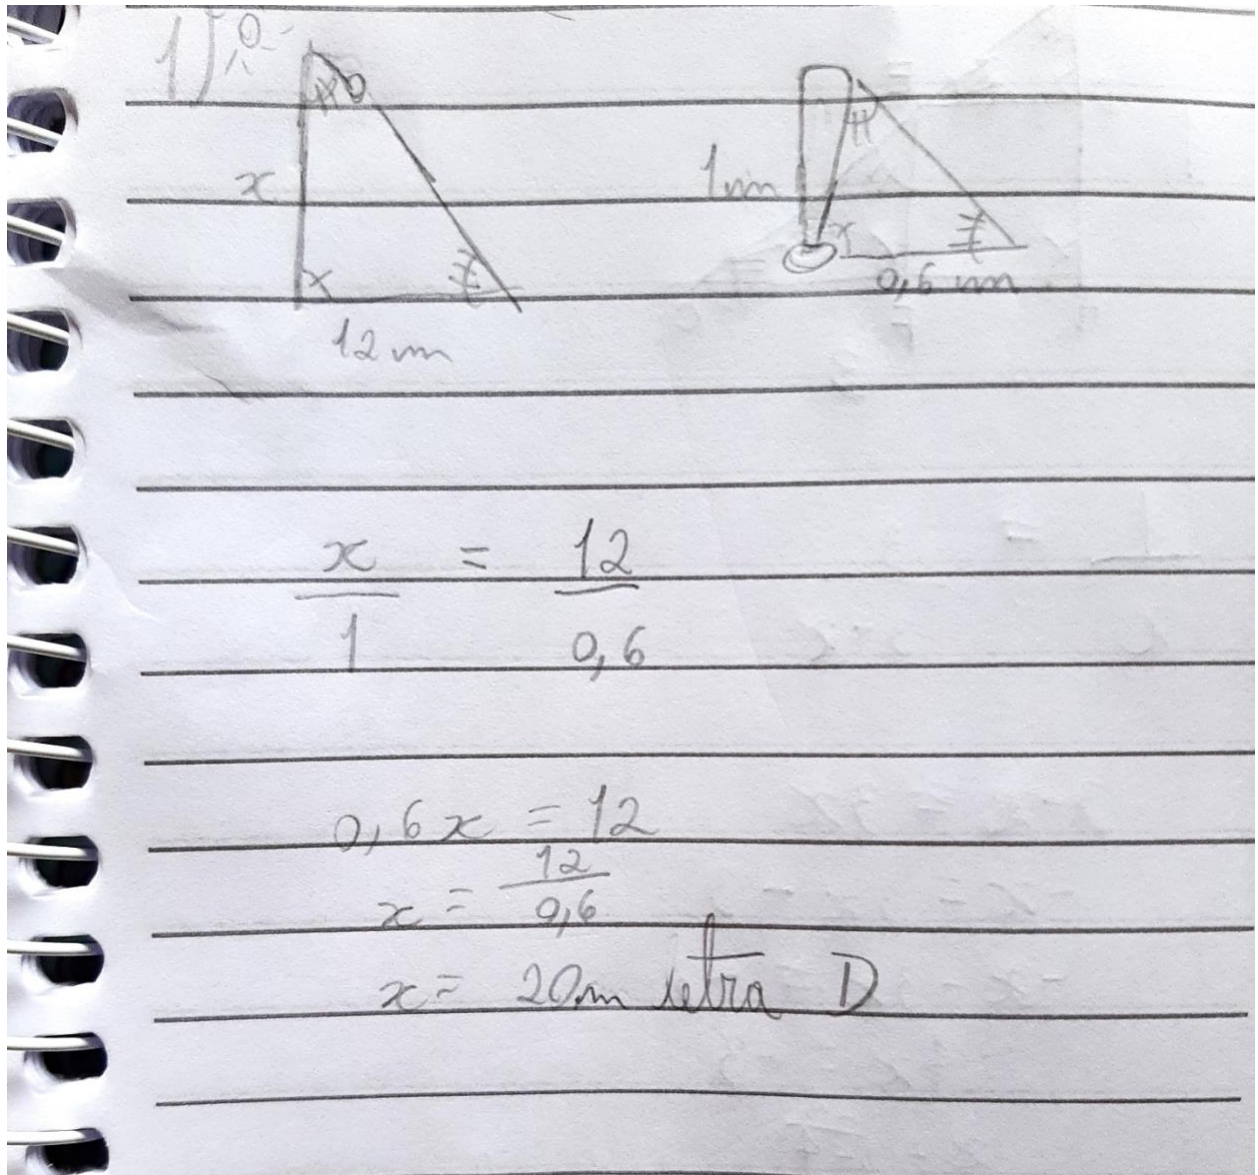 1)
x
1m
0,6 m
12 m
x = 12
1 0,6
0,6x = 12
x = 12
0,6
x = 20m letra D